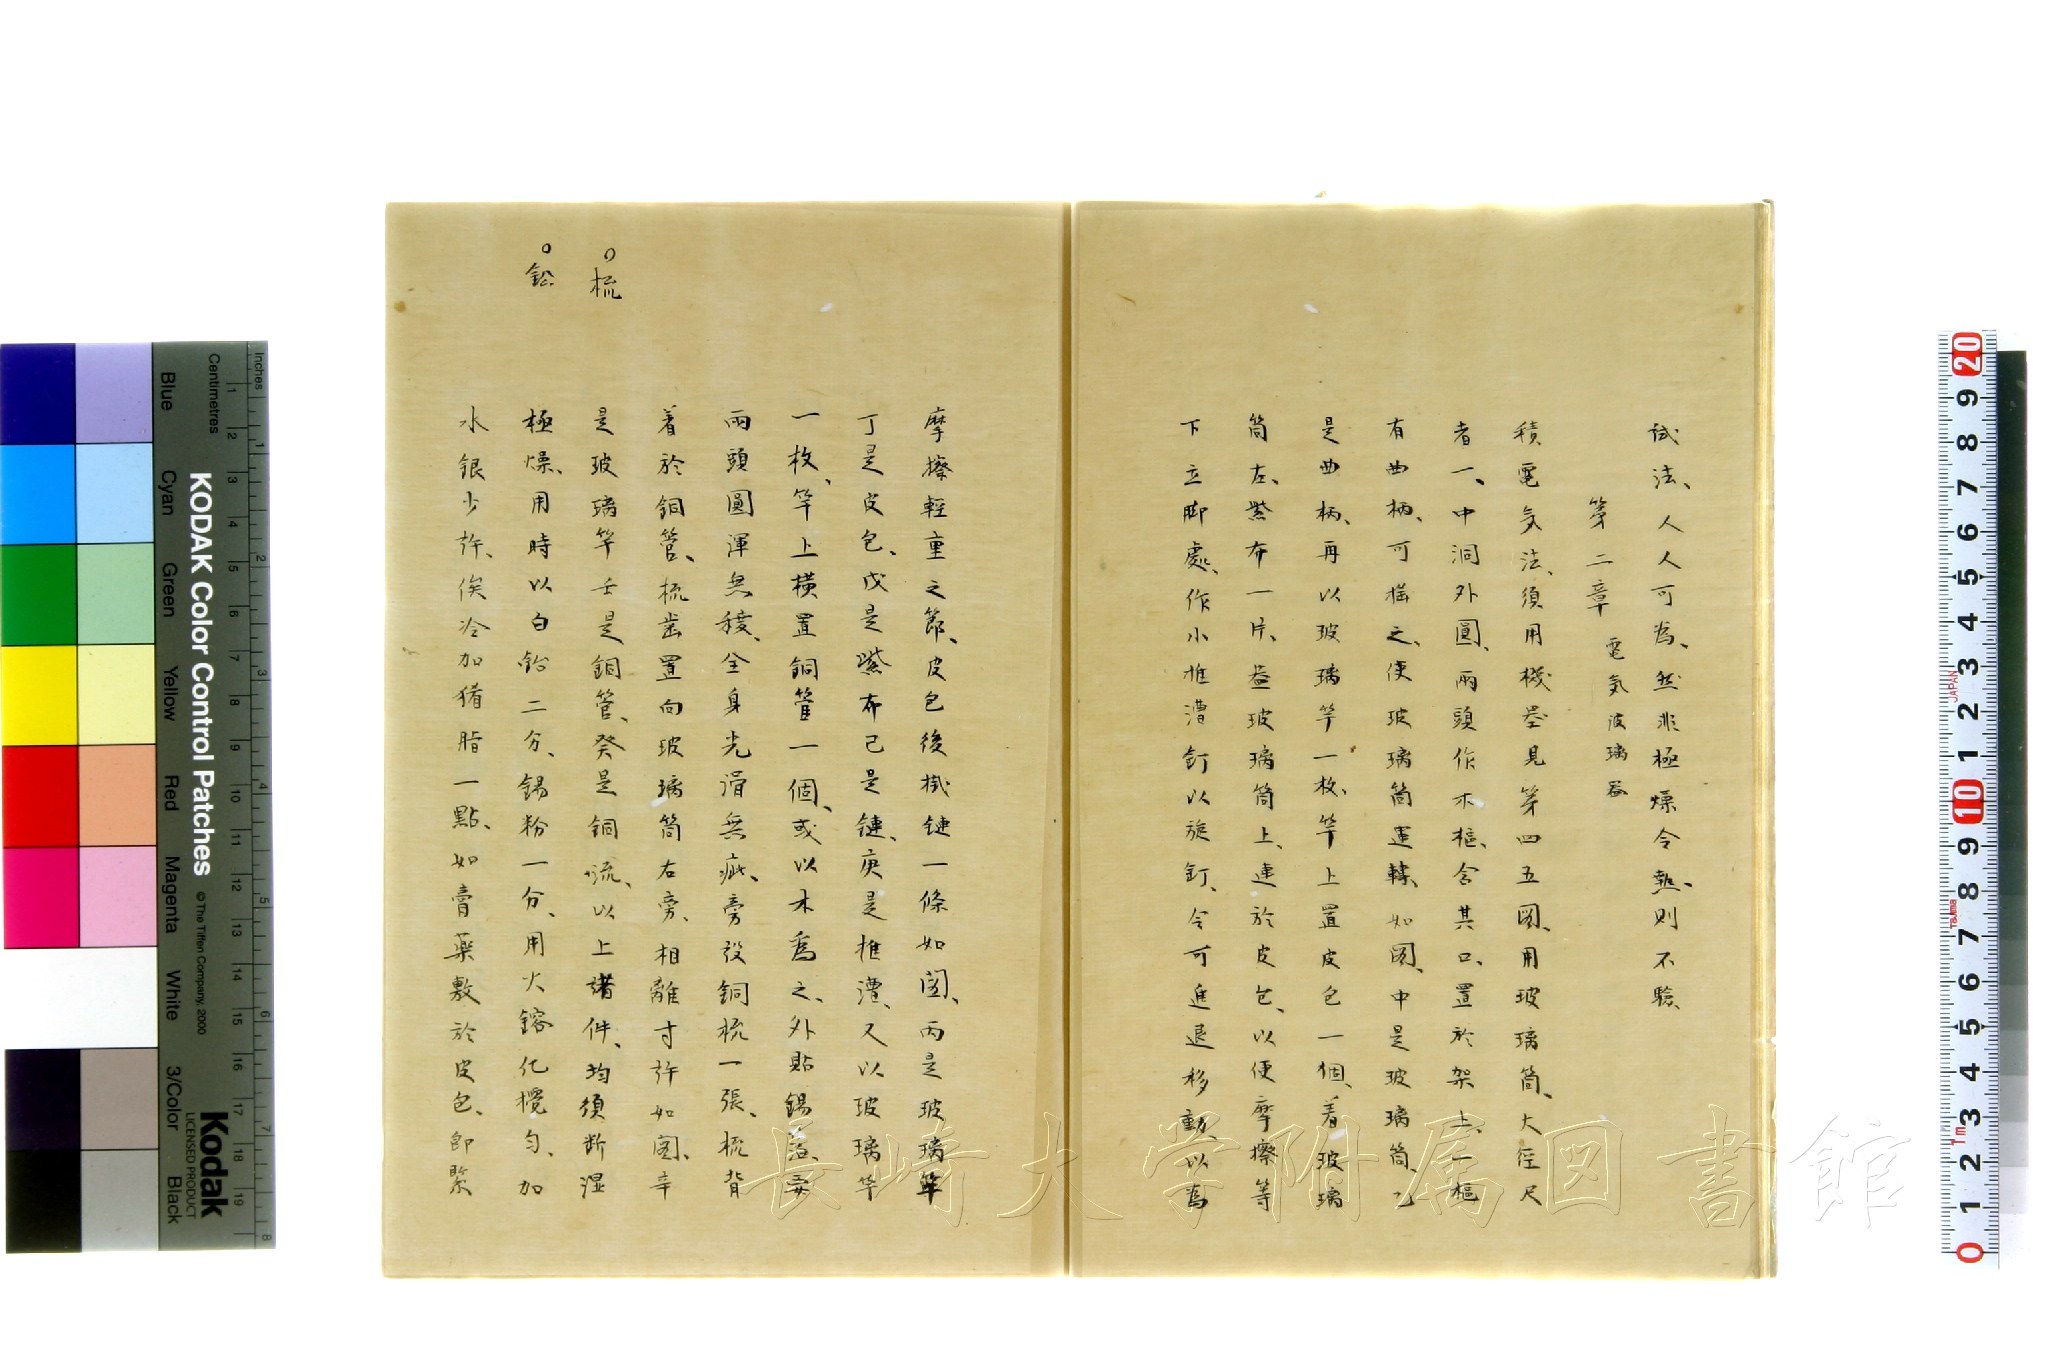 試法、人人可為、然非極燥令熱、則不驗
第二章 電氣波璃器
積電気法、須用機器見第四五図、用玻璃筒、大徑尺
者一、中洞外圓、兩頭作木樞、含其口、置於架上、一樞
有曲柄、可搖之、使玻璃筒運轉、如図、中是玻璃筒、乙
是曲柄、再以玻璃竿一枚、竿上置皮包一個、着玻璃
筒左、紫布一片、蓋玻璃筒上、連於皮包、以便摩擦等
下立脚處、作小推漕釘以旋釘、令可進退移動、以為
摩擦輕重之節、皮包後掛鏈一條如図、丙是玻璃竿
丁是皮包、戊是紫布己是鏈、庚是推漕、又以玻璃竿
一枚、竿上橫置銅管一個、或以木為之、外貼錫箔、要
兩頭圓渾無稜、全身光滑無疵、旁設銅梳一張、梳背
着於銅管、梳齒置向玻璃筒右旁、相離寸許如図、辛
是玻璃竿壬是銅管、癸是銅流、以上諸件、均須断湿
極燥、用時以白鉛二分、錫粉一分、用火鎔化攪勻、加
水銀少許、俟冷加猪脂一點、如膏藥敷於皮包、即緊
○梳
○鉛
KODAK Color Control Patches
© The Tiffen Company, 2000
Kodak
LICENSED PRODUCT
Inches
Centimetres
Blue Cyan Green Yellow Red Magenta White 3/Color Black
長崎大学附属図書館
JAPAN
Tajima
1m